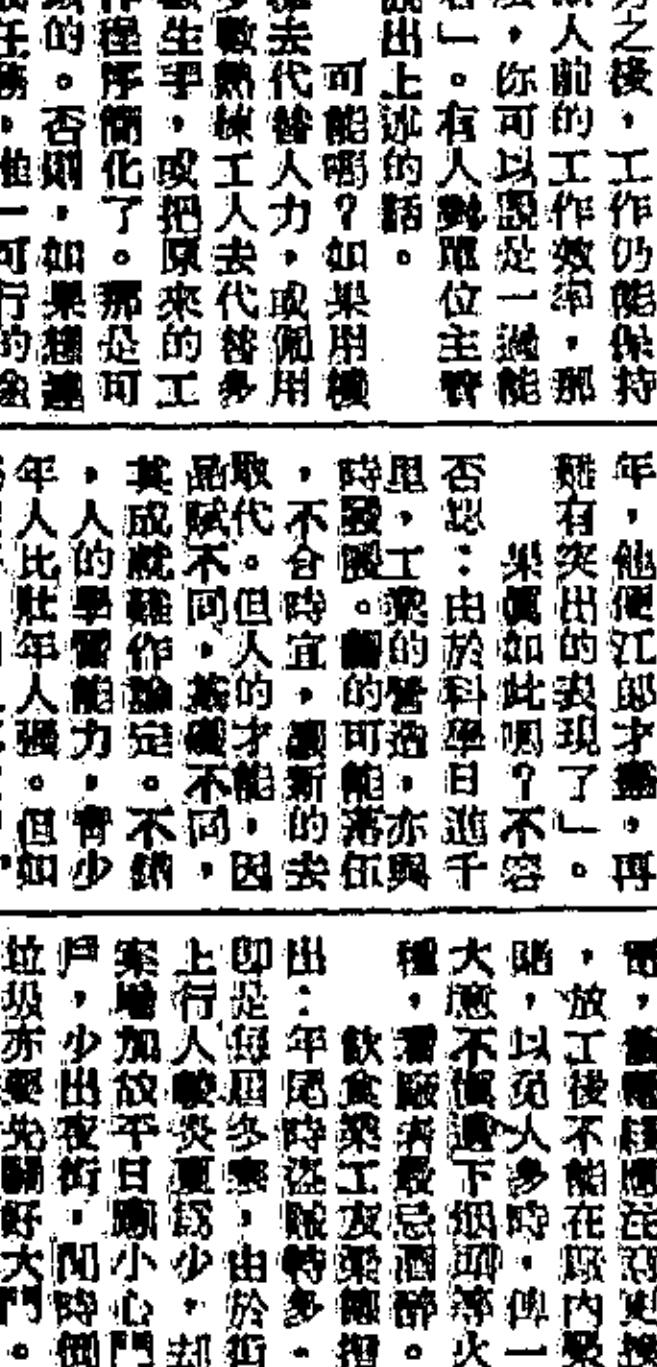 之後，工作仍能保持
人前的工作效率，那
，你可以說是一過能
」。有人對單位主管
說出上述的話。
可能嗎？如果用機
去代替人力，或僱用
數熟練工人去代替多
生手，或把原來的工
作程序簡化了。那是可
的。否則，如果想達
任務，惟一可行的途
年，他便江郎才盡，再
難有突出的表現了」。
果真如此嗎？不容
否認：由於科學日進千
里，工業的營造，亦與
時發展。舊的可能落伍
，不合時宜，讓新的去
取代。但人的才能，因
品賦不同，基礎不同，
其成就難作論定。不錯
，人的學習能力，青少
年人比壯年人強。但如
，放工後不能在廠內
，以免人多時，俾一
大意不慎遺下烟頭等火
種，看廠者最忌酒醉。
飲食業工友梁
出：年尾時盜賊特多，
即是每屆冬季，由於街
上行人較炎夏為少，刧
案增加故平日應小心門
戶，少出夜街，閒時倒
垃圾亦要先關好大門。